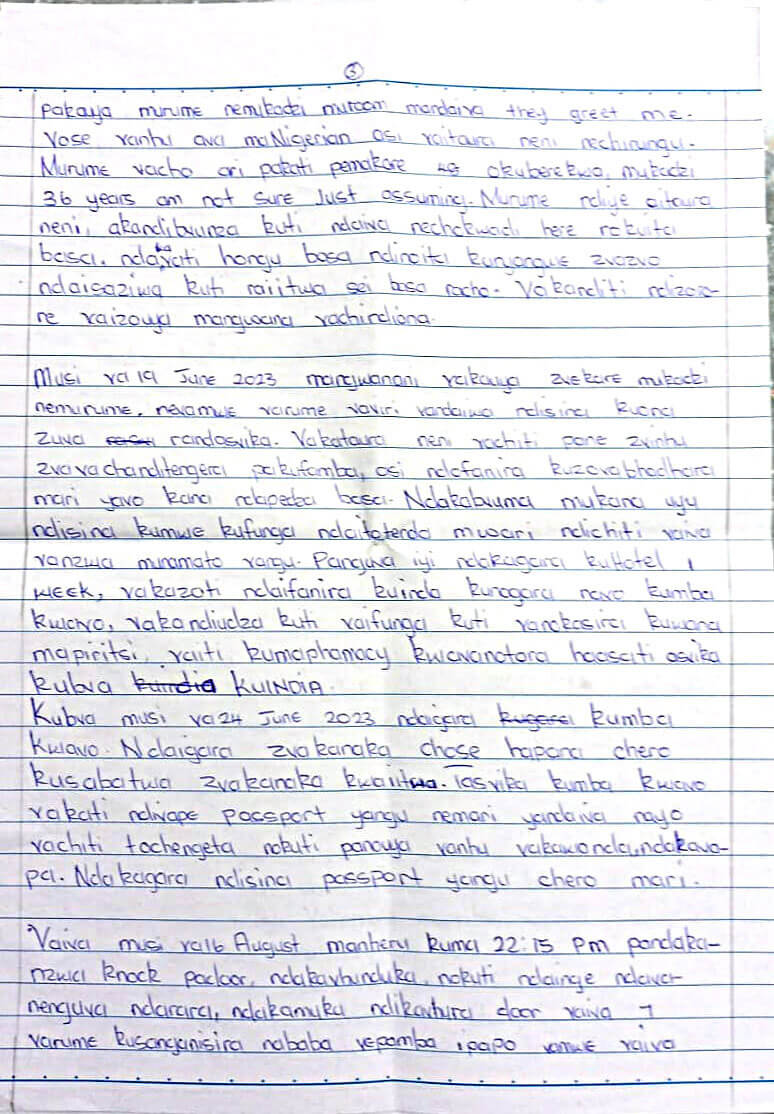 3
pakauya murume nemukadzi muroom mandaiva they greet me.
Vose vanhu ava maNigerian asi vaitaura neni nechirungu.
Murume vacho ari pakati pemakore 45 okuberekwa, mukadzi
36 years am not sure Just assuming. Murume ndiye aitaura
neni, akandibvunza kuti ndaiva nechokwadi here rekuita
basa. ndakati hongu basa ndinoita kunyangwe zvazvo
ndaisaziwa kuti raiitwa sei basa racho. Vakanditi ndizoro-
re vaizouya mangwana vachindiona.
Musi va19 June 2023 mangwanani vakauya zvekare mukadzi
nemurume, nevamwe varume vaviri vandaiwa ndisina kuona
zuva randasvika. Vakataura neni vachiti pane zvinhu
zvavachanditengera pakufamba, asi ndofanira kuzovabhadhara
mari yavo kana ndapedza basa. Ndakabvuma mukana uyu
ndisina kumwe kufunga ndaitotenda mwari ndichiti vaiva
vanzwa munamato vangu. Panguva iyi ndakagara kuHotel 1
WEEK, vakazoti ndaifanira kuinda kunogara navo kumba
kwavo, vakandiudza kuti vaifunga kuti vanokasira kuwana
mapiritsi, vaiti kumaphamacy kwavanotora haasati asvika
kubva kuindia KUINDIA.
Kubva musi va24 June 2023 ndaigara kugara kumba
kwavo. Ndaigara zvakanaka chose hapana chero
kusabatwa zvakanaka kwaiitwa. Tasvika kumba kwavo
vakati ndivape passport yangu nemari yandaiva nayo
vachiti tochengeta nokuti panouya vanhu vakawanda, ndakava-
pa. Ndakagara ndisina passport yangu chero mari.
Vaiva musi va16 August manheru kuma 22:15 pm pandaka-
nzwa knock padoor, ndakavhunduka, nokuti ndainge ndava
nenguva ndarara, ndakamuka ndikavhura door vaiva 7
varume kusanganisira nababa vepamba ipapo vamwe vaiva